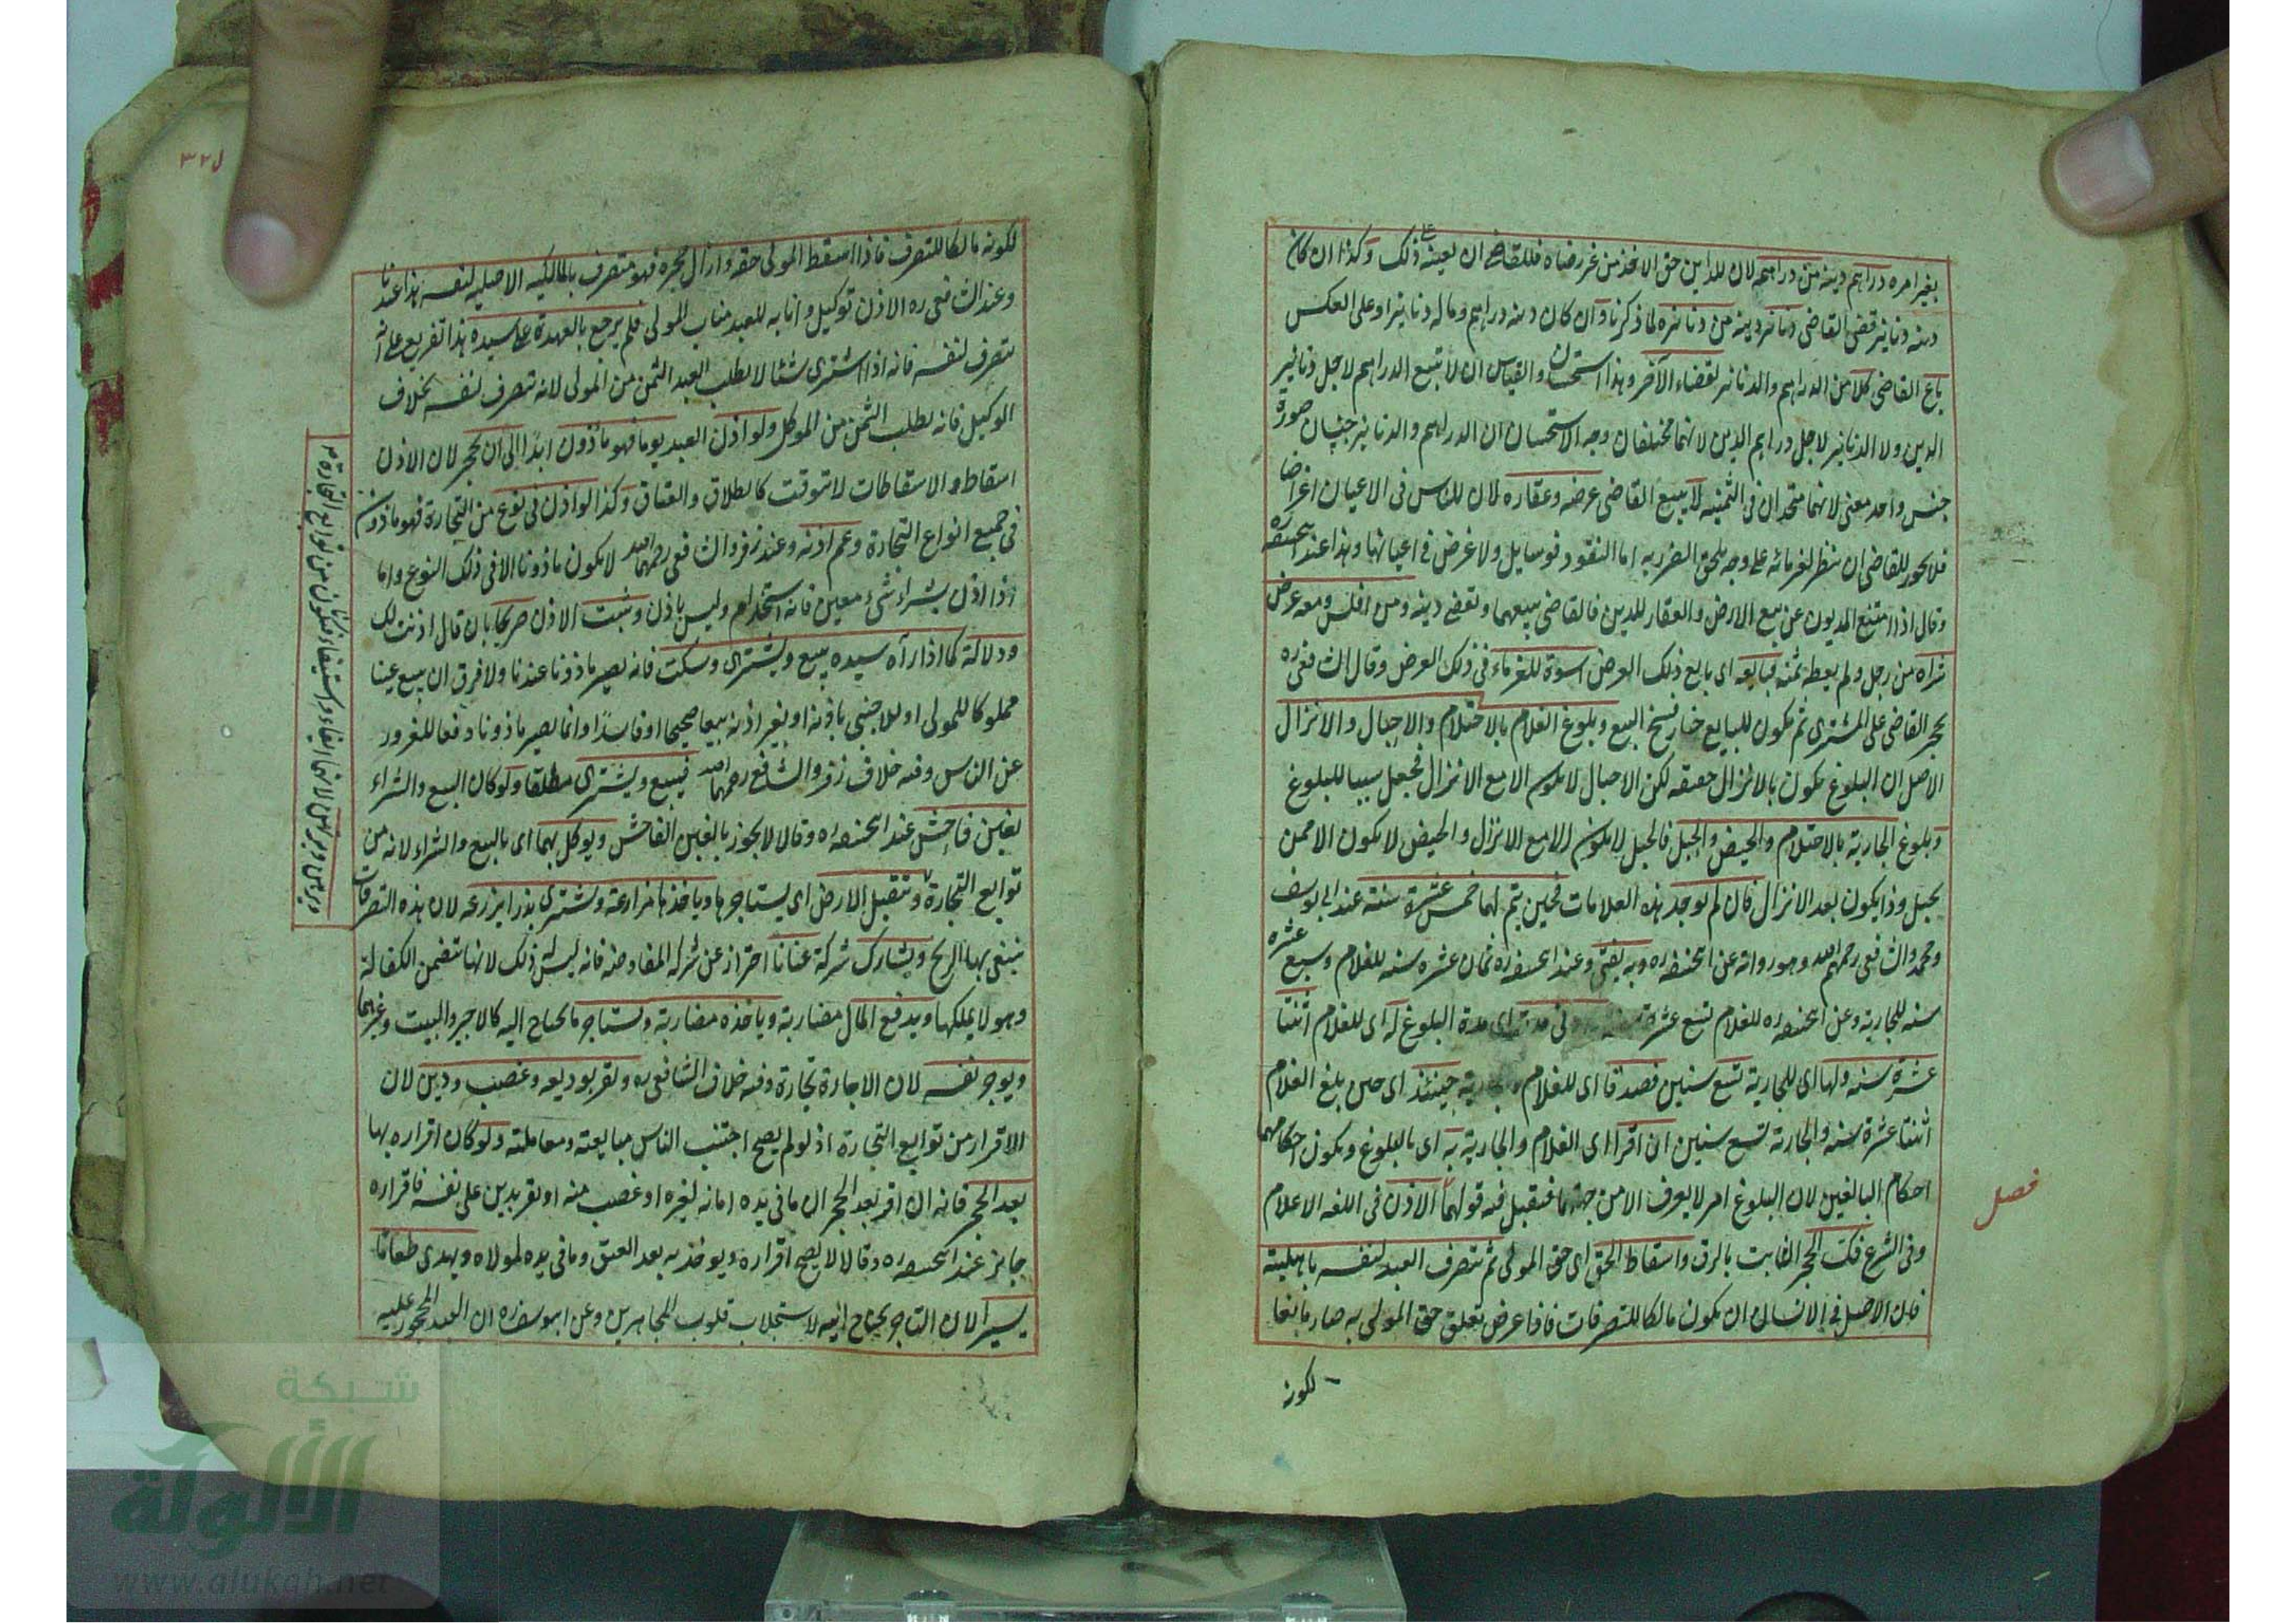 بغير امره دراهم دينه من دراهمه لان للداين حق الاخذ من غير رضاه فللقاضي ان يعينه على ذلك وكذا ان كان
دينه دنانير قضى القاضي دنانير دينه من دنانيره لما ذكرنا وان كان دينه دراهم وماله دنانير او على العكس
باع القاضي كلا من الدراهم والدنانير لقضاء الآخر وهذا استحسان والقياس ان لا تبيع الدراهم لاجل دنانير
الدين ولا الدنانير لاجل دراهم الدين لانهما مختلفان وجه الاستحسان ان الدراهم والدنانير جنسان صورة
جنس واحد معنى لانهما متحدان في الثمنية لا يبيع القاضي عرضه وعقاره لان للناس في الاعيان اغراضا
فلا يجوز للقاضي ان ينظر لغرمائه على وجه يلحق الضرر به اما النقود فوسايل ولا غرض في اعيانها وهذا عند ابيحنيفه ره
وقال اذا امتنع المديون عن بيع الارض والعقار للدين فالقاضي يبيعهما ويقضي دينه ومن افلس ومعه عرض
شراه من رجل ولم يعطه ثمنه فبايعه اى بايع ذلك العرض اسوة للغرماء في ذلك العرض وقال الشافعي ره
يحجر القاضي على المشترى ثم يكون للبايع خيار فسخ البيع وبلوغ الغلام بالاحتلام والاحبال والانزال
الاصل ان البلوغ يكون بالانزال حقيقه لكن الاحبال لا يكون الا مع الانزال فجعل سببا للبلوغ
وبلوغ الجارية بالاحتلام والحيض والحبل فالحبل لا يكون الا مع الانزال والحيض لا يكون الا ممن
يحبل وذا يكون بعد الانزال فان لم يوجد هذه العلامات فحين يتم لهما خمس عشرة سنة عند ابي يوسف
ومحمد والشافعي رحمهم الله وهو رواية عن ابيحنيفه ره وبه يفتى وعند ابيحنيفه ره ثمان عشره سنه للغلام وسبع عشره
سنه للجارية وعن ابيحنيفه ره للغلام تسع عشرة اى مدة البلوغ له اى للغلام اثنتا
عشرة سنه ولها اى للجارية تسع سنين فصدقا اى للغلام حينئذ اى حين بلغ الغلام
اثنتا عشرة سنه والجارية تسع سنين ان اقرا اى الغلام والجارية به اى بالبلوغ ويكون احكامهما
احكام البالغين لان البلوغ امر لا يعرف الا من جهتهما فيقبل فيه قولهما الاذن في اللغه الاعلام
فصل
وفى الشرع فك الحجر الثابت بالرق واسقاط الحق اى حق المولى ثم يتصرف العبد لنفسه باهليته
فان الاصل في الانسان ان يكون مالكا للتصرفات فاذا عرض تعلق حق المولى به صار مانعا
لكونه
ل٣٢
لكونه مالكا للتصرف فاذا اسقط المولى حقه وازال حجره فهو متصرف بالمالكيه الاصليه لنفسه هذا عندنا
وعند الشافعي ره الاذن توكيل وانابه للعبد مناب المولى فلم يرجع بالعهدة على سيده هذا تفريع على انه
يتصرف لنفسه فانه اذا اشترى شيئا لا يطلب العبد الثمن من المولى لانه تصرف لنفسه بخلاف
الوكيل فانه يطلب الثمن من الموكل ولو اذن العبد يوما فهو ماذون ابدا الى ان يحجر لان الاذن
اسقاط والاسقاطات لا تتوقت كالطلاق والعتاق وكذا لو اذن في نوع من التجارة فهو ماذون
في جميع انواع التجارة وعم اذنه وعند زفر والشافعي رحمهما الله لا يكون ماذونا الا في ذلك النوع واما
اذا اذن بشراء شيء معين فانه استخدام وليس باذن ويثبت الاذن صريحا بان قال اذنت لك
ودلالة كما اذا رآه سيده يبيع ويشترى وسكت فانه يصير ماذونا عندنا ولا فرق ان يبيع عينا
مملوكا للمولى او للاجنبي باذنه او بغير اذنه بيعا صحيحا او فاسدا وانما يصير ماذونا دفعا للغرور
عن الناس وفيه خلاف زفر والشافعي رحمهما الله فيبيع ويشترى مطلقا ولو كان البيع والشراء
بغبن فاحش عند ابيحنيفه ره وقالا لا يجوز بالغبن الفاحش ويوكل بهما اى بالبيع والشراء لانه من
توابع التجارة ويتقبل الارض اى يستاجرها وياخذها مزارعة ويشترى بذرا يزرعه لان هذه التصرفات
يبتغى بها الربح ويشارك شركة عنانا احتراز عن شركه المفاوضه فانه ليس ذلك لانها تتضمن الكفالة
وهو لا يملكها ويدفع المال مضاربة وياخذه مضاربة ويستاجر ما يحتاج اليه كالاجير والبيت وغيرهما
ويوجر نفسه لان الاجارة تجارة وفيه خلاف الشافعي ره ويقر بوديعه وغصب ودين لان
الاقرار من توابع التجارة اذ لو لم يصح اجتنب الناس مبايعته ومعاملته ولو كان اقراره بها
بعد الحجر فانه ان اقر بعد الحجر ان ما في يده امانه لغيره او غصب منه او يقر بدين على نفسه فاقراره
جايز عند ابيحنيفه ره وقالا لا يصح اقراره ويوخذ به بعد العتق وما في يده لمولاه ويهدى طعاما
يسيرا لان التاجر يحتاج اليه لاستجلاب قلوب المجاهزين وعن ابيوسف ره ان العبد المحجور عليه
ويرهن ويرتهن لانها ايفاء واستيفاء فيكون من توابع التجارة
شبكة
الألوكة
www.alukah.net